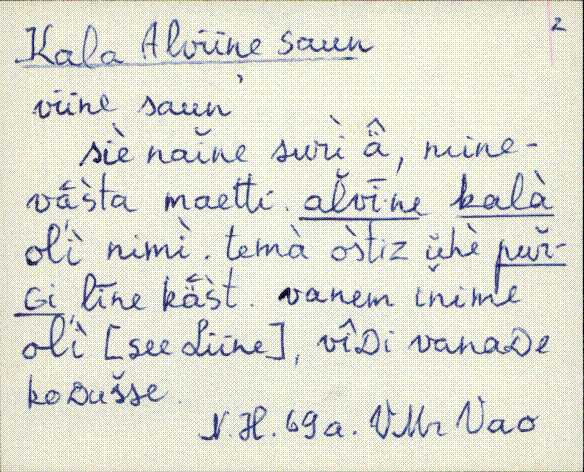 2
Kala Alviine saun
viine saun'
siè näĭne surì ä̂, mine-
vä̂šta maetti. ălvīne kalà
oĺì nimì. temà òstiz ŭhè pŭr-
Gi, līne kä̂st. vanem ĭnime
oĺì [see Liine], vîDi vanaDe
koDušse.
N.H. 69 a. VMr Vao